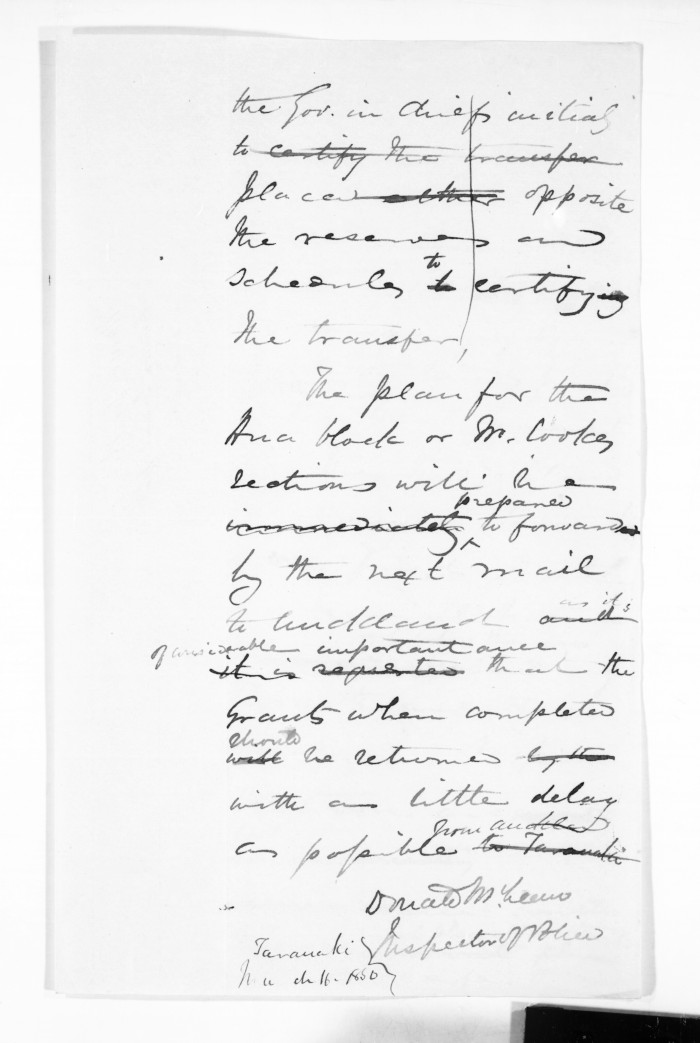 the Gov. in chiefs initials
to certify the transfer
placed either opposite
the reserves and
schedules to be certifying
the transfer,
The plan for the
Hua block or Mr. Cookes
sections will be
prepared
immediately to forwarded
by the next mail
to Auckland and as it is
of considerable importance
it is requested that the
Grants when completed
should
will be returned by the
with as little delay
from Auckland
as possible to Taranaki
Donald McLean
Inspector of Police
Taranaki
March 16. 1850